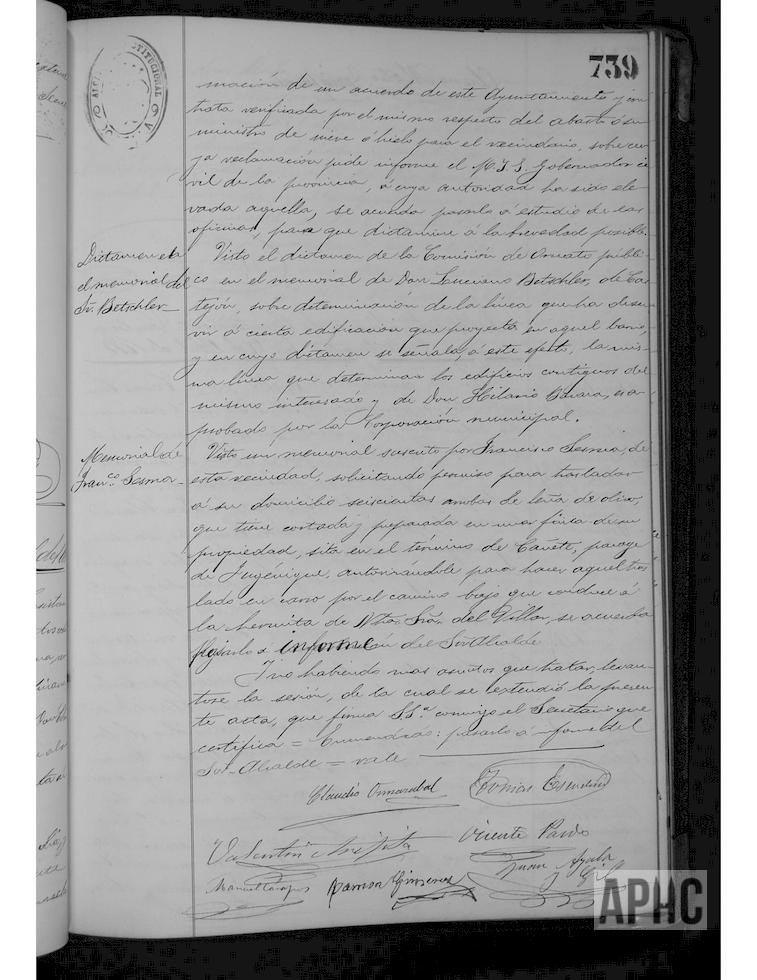 739
mación de un acuerdo de este Ayuntamiento y con
trata verificada por el mismo respecto del abasto ó su
ministro de nieve ó hielo para el vecindario, sobre cu
ya reclamación pide informe el M.I.S. Gobernador ci
vil de la provincia, á cuya autoridad ha sido ele
vada aquella, se acuerda pasarlo á estudio de las
oficinas, para que dictamine á la brevedad posible.
Dictamen en
el memorial del
Sr. Betschler
Visto el dictamen de la Comisión de Ornato públi-
co en el memorial de Don Luciano Betschler, de Cas
tejón, sobre determinación de la línea que ha de ser
vir á cierta edificación que proyecta en aquel barrio,
y en cuyo dictamen se señala, á este efecto, la mis-
ma línea que determinan los edificios contiguos del
mismo interesado y de Don Hilario es a-
probado por la Corporación municipal.
Memorial de
Franco. Sesma
Visto un memorial suscrito por Francisco Sesma, de
esta vecindad, solicitando permiso para trasladar
á su domicilio seiscientas arrobas de leña de olivo,
que tiene cortada y preparada en una finca de su
propiedad, sita en el término de Cañete, parage
de autorizándole para hacer aquel tras
lado en carro por el camino bajo que conduce á
la hermita de Ntra. Sra. del Villar, se acuerda
pasarlo á informe del Sor. Alcalde
Y no habiendo mas asuntos que tratar, levan-
tose la sesión, de la cual se extendió la presen
te acta, que firma S.Sa. conmigo el Secretario que
certifica = Enmendado: pasarlo á informe del
Sor. Alcalde = vale
Claudio
Tomás Escudero
Valentín
Vicente Pardo
Manuel Campos
Ramón Gimenez
Juan Ayala
y Gil
APHC